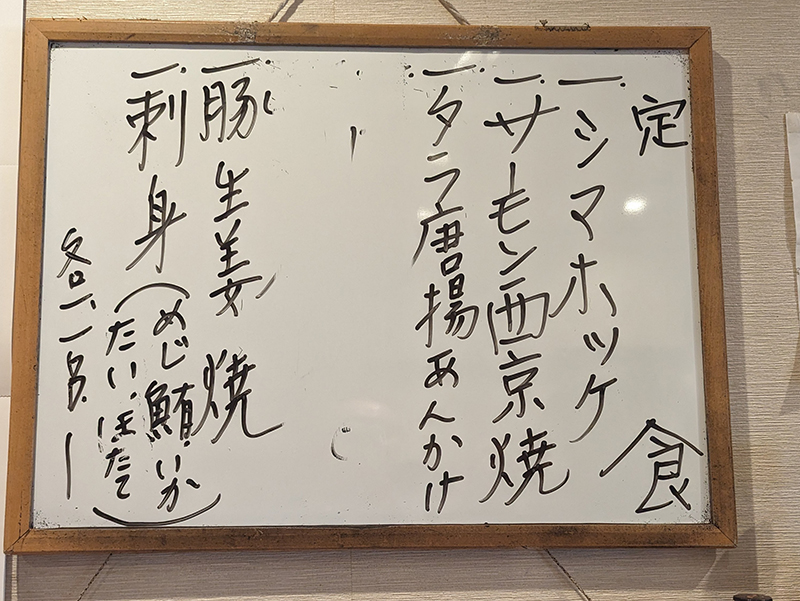 定食
一.シマホッケ
一.サーモン西京焼
一.タラ唐揚あんかけ
一.豚生姜焼
一.刺身(めじ鮪・いか
たい・ほたて)
各